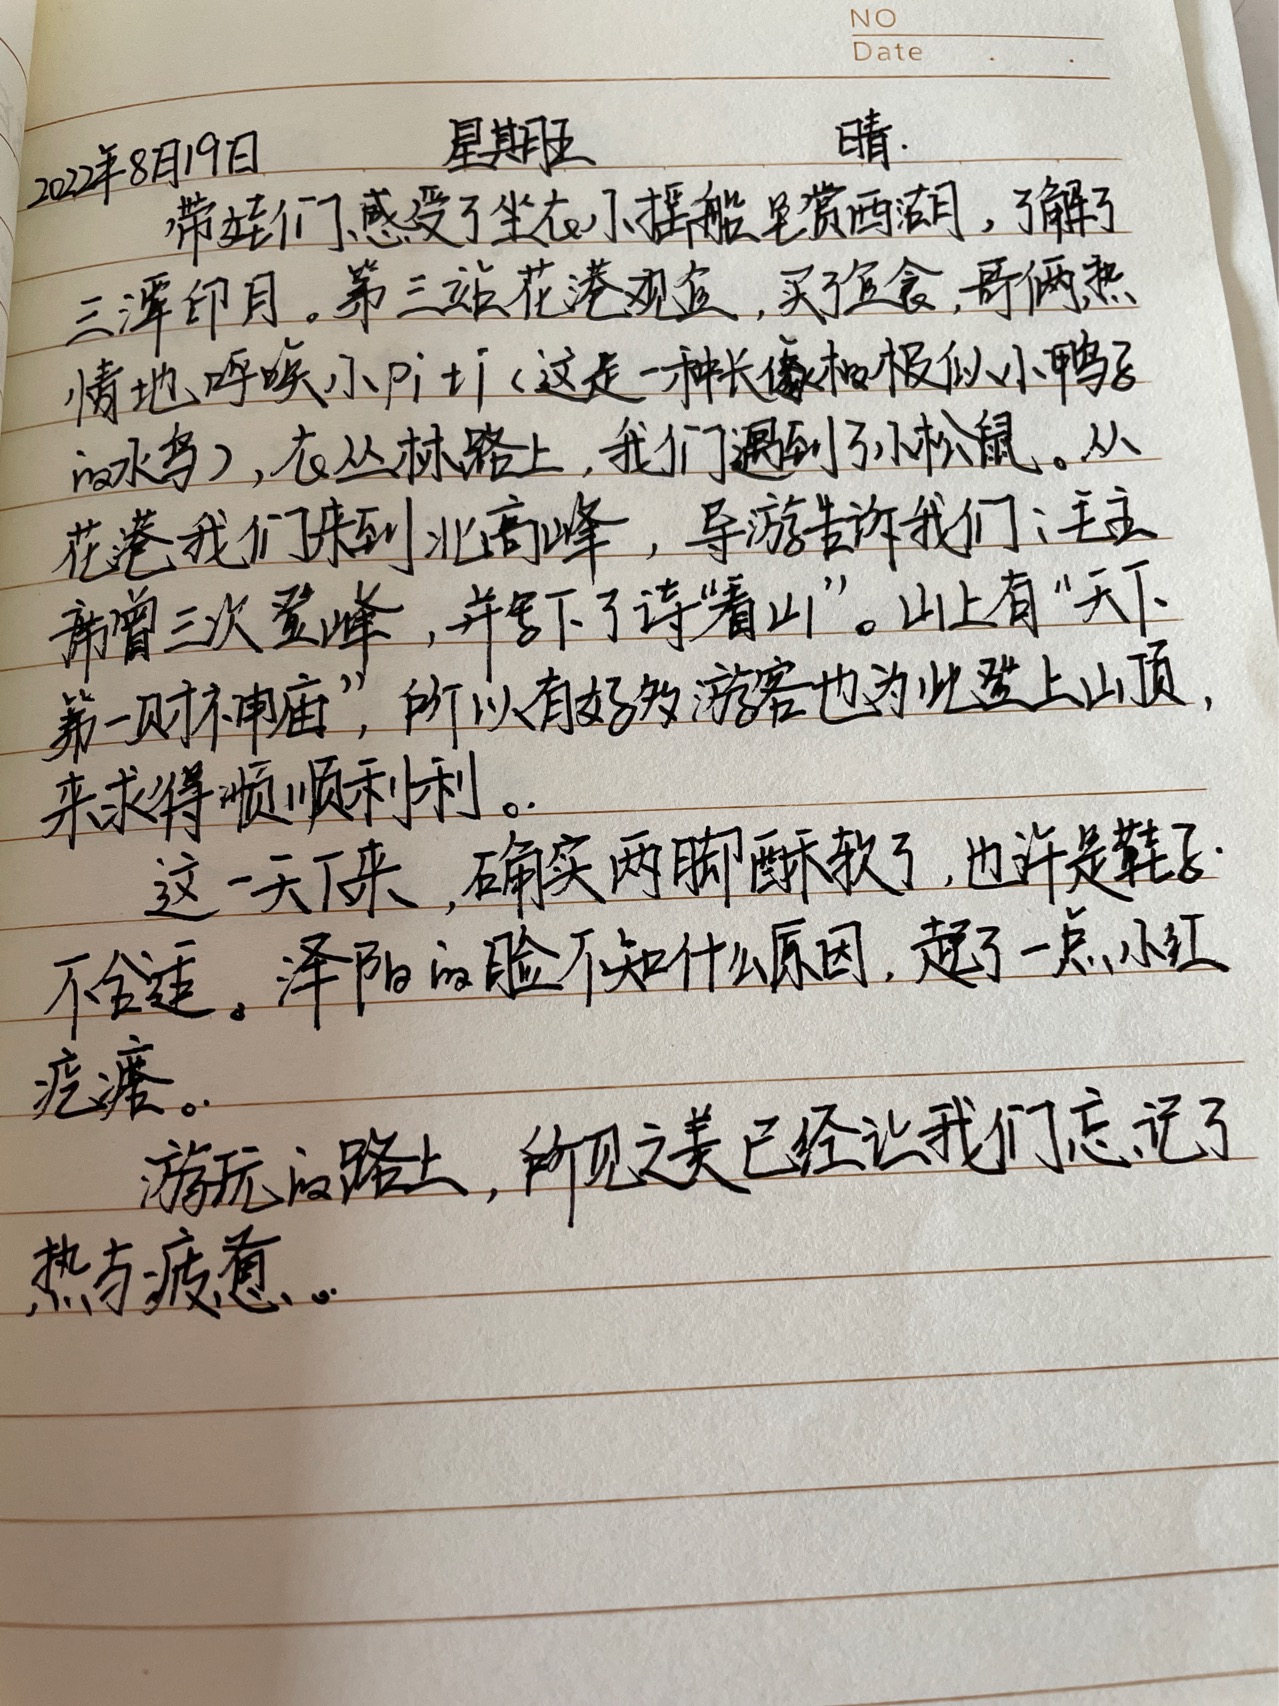 NO
Date . .
2022年8月19日 星期五 晴.
带娃们感受了坐在小摇船里赏西湖,了解了
三潭印月。第三站花港观鱼,买了鱼食,哥俩热
情地呼唤小piti(这是一种长像极似小鸭子
的水鸟),在丛林路上,我们遇到了小松鼠。从
花港我们来到北高峰,导游告诉我们:毛主
席曾三次登峰,并写下了诗“看山”。山上有“天下
第一财神庙”,所以有好多游客也为此登上山顶,
来求得顺顺利利。
这一天下来,确实两脚酥软了,也许是鞋子
不合适。泽阳的脸不知什么原因,起了一点小红
疙瘩。
游玩的路上,所见之美已经让我们忘记了
热与疲惫。